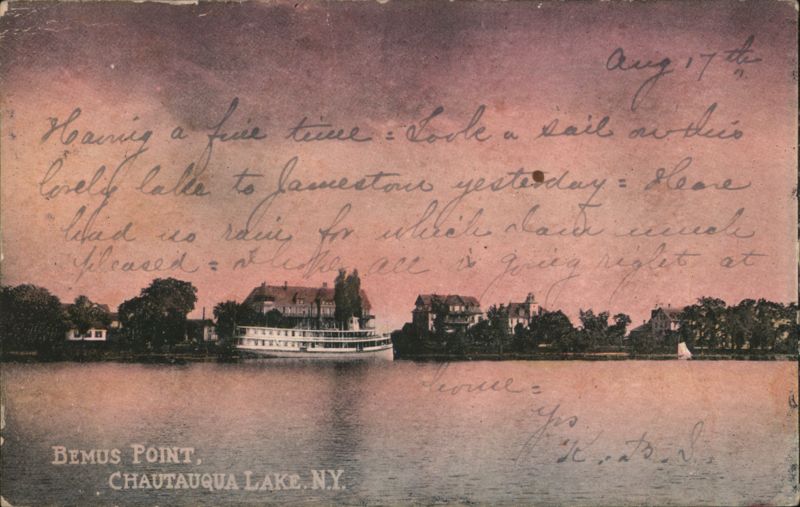 Aug 17th
Having a fine time = Took a sail on this
lovely lake to Jamestown yesterday = Have
had no rain for which I am much
pleased = I hope all is going right at
home =
Yrs
K. B. D.
BEMUS POINT,
CHAUTAUQUA LAKE. N.Y.